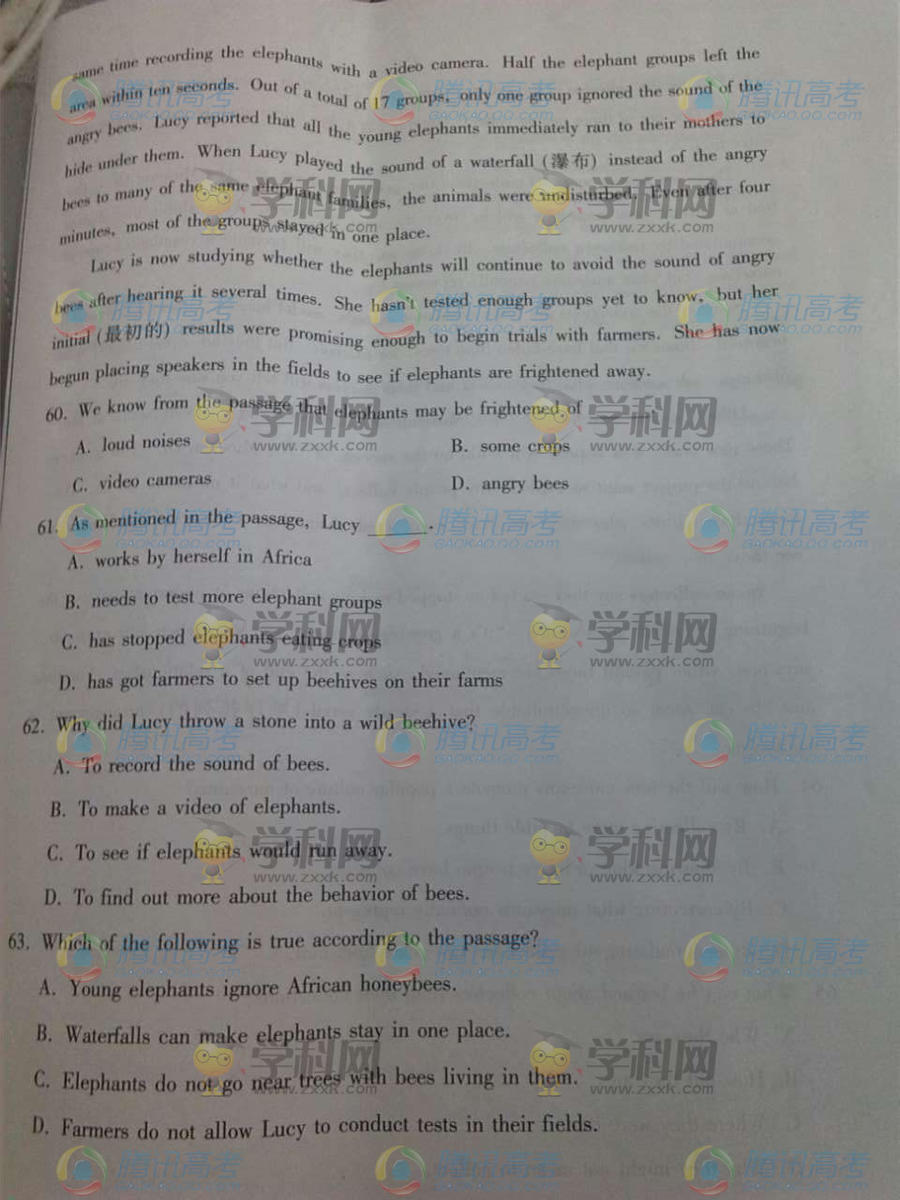 same time recording the elephants with a video camera. Half the elephant groups left the
area within ten seconds. Out of a total of 17 groups, only one group ignored the sound of the
angry bees. Lucy reported that all the young elephants immediately ran to their mothers to
hide under them. When Lucy played the sound of a waterfall (瀑布) instead of the angry
bees to many of the same elephant families, the animals were undisturbed. Even after four
minutes, most of the groups stayed in one place.
Lucy is now studying whether the elephants will continue to avoid the sound of angry
bees after hearing it several times. She hasn't tested enough groups yet to know, but her
initial (最初的) results were promising enough to begin trials with farmers. She has now
begun placing speakers in the fields to see if elephants are frightened away.
60. We know from the passage that elephants may be frightened of ______.
A. loud noises B. some crops
C. video cameras D. angry bees
61. As mentioned in the passage, Lucy ______.
A. works by herself in Africa
B. needs to test more elephant groups
C. has stopped elephants eating crops
D. has got farmers to set up beehives on their farms
62. Why did Lucy throw a stone into a wild beehive?
A. To record the sound of bees.
B. To make a video of elephants.
C. To see if elephants would run away.
D. To find out more about the behavior of bees.
63. Which of the following is true according to the passage?
A. Young elephants ignore African honeybees.
B. Waterfalls can make elephants stay in one place.
C. Elephants do not go near trees with bees living in them.
D. Farmers do not allow Lucy to conduct tests in their fields.
腾讯高考
GAOKAO.QQ.COM
学科网
www.zxxk.com